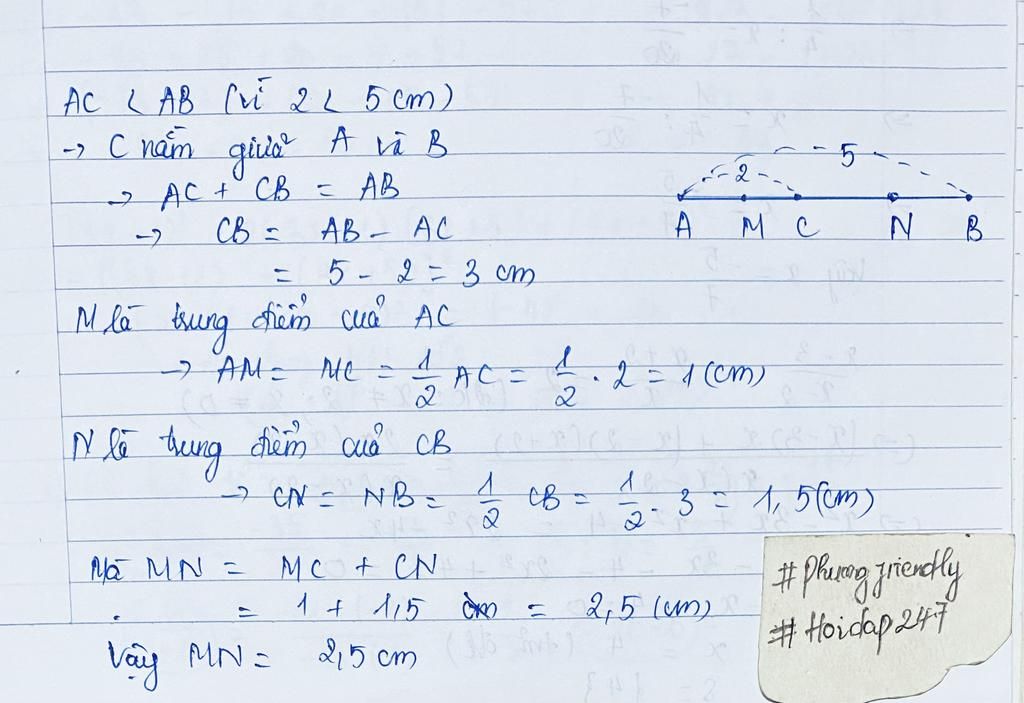 AC < AB (vì 2 < 5 cm)
→ C nằm giữa A và B
→ AC + CB = AB
→ CB = AB - AC
= 5 - 2 = 3 cm
M là trung điểm của AC
→ AM = MC = 1/2 AC = 1/2 . 2 = 1 (cm)
N là trung điểm của CB
→ CN = NB = 1/2 CB = 1/2 . 3 = 1,5 (cm)
Mà MN = MC + CN
= 1 + 1,5 cm = 2,5 (cm)
Vậy MN = 2,5 cm
5
2
A M C N B
# Phuongfriendly
# Hoidap247